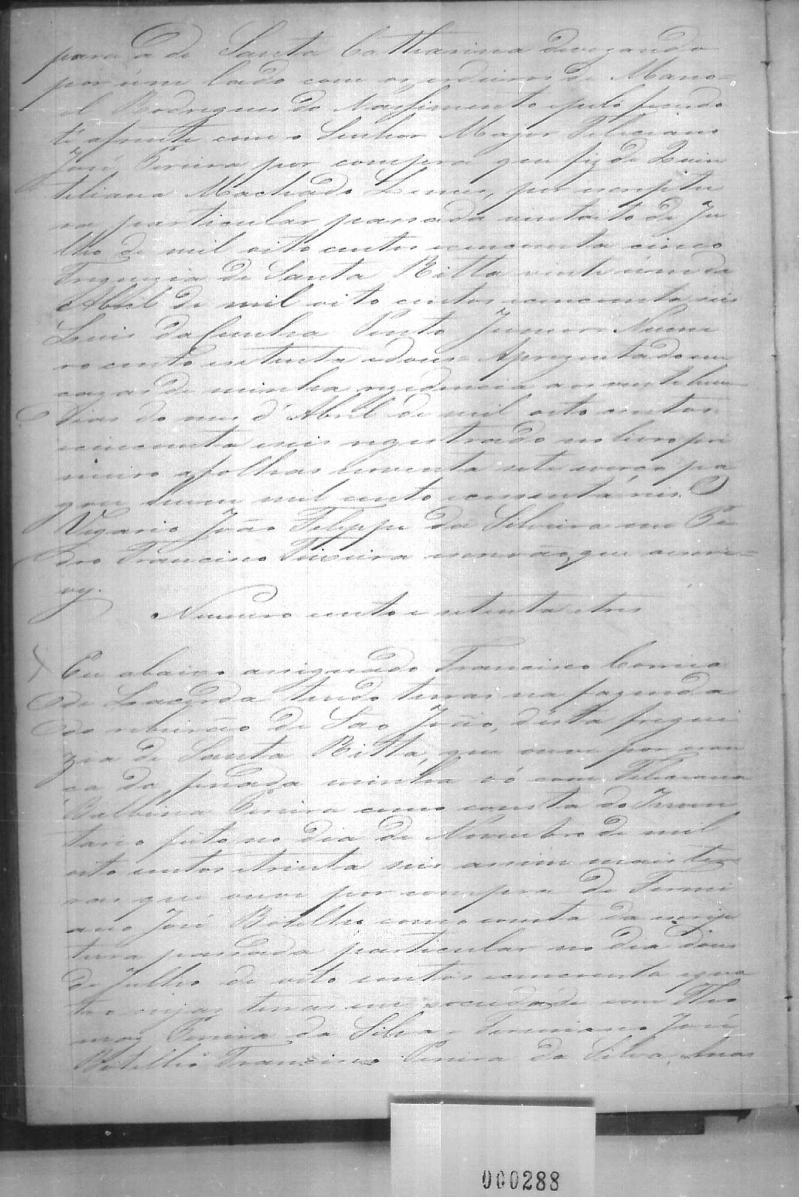 para a de Santa Catharina devezando
por um lado com os erdeiros de Mano-
el Rodrigues do Nassimento e pelo fundo
com o Senhor Major Feliciano
José Pereira por compra que fiz de Quin
tiliana Machado Lemes, por escriptu
ra particular passada vinte oito de Ju
lho de mil oito centos e cincoenta cinco
Freguezia de Santa Ritta vinte um de
Abril de mil oito centos e cincoenta seis
Luis da Cunha Pinto Junior. Nume
ro cento e setenta e dous. Aprezentado em
cazas de minha rezidencia aos vinte hum
dias do mes d'Abril de mil oito centos
cincoenta e seis registrado no livro pri
meiro a folhas noventa sete verço pa
gou hum mil cento e cincoenta reis. O
Vigario João Felippe da Silveira eu Pe
dro Francisco Teixeira escrivão que escre-
vy.
Numero cento e setenta e tres
Eu abaixo assignado Francisco Correia
de Lacerda tendo terras na fazenda
do ribeirão de São João, desta fregue
zia de Santa Ritta, que ouve por eran
ca da finada minha vó com Feliciana
Balbina Pereira como consta do Inven
tario feito no dia de Novembro de mil
oito centos e trinta seis assim mais ter
ras que ouve por compra de Firmi
ano José Botelho como consta da escrip
tura passada particular no dia dous
de Julho de oito centos e cincoenta e qua
tro cujas terras em sociedade com Tho
maz Pereira da Silva e Firmiano José
Botelho Francisco Pereira da Silva, Anas
000288